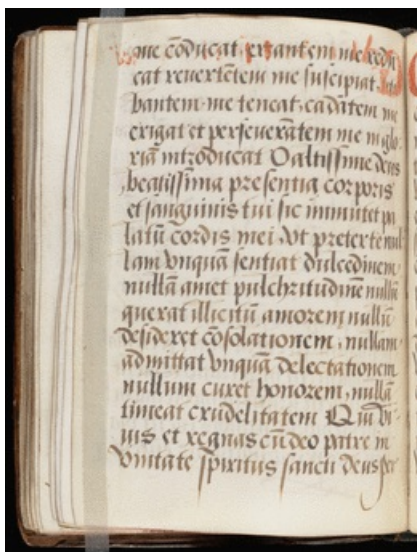 me cōducat. errantem me redu
cat reuertētem me suscipiat. titu
bantem me teneat. cadātem me
erigat et perseuerātem me in glo
riā introducat O altissime deus
beatissima presentia corporis
et sanguinis tui sic inmutet pa
latū cordis mei vt preter te nul
lam vnquā sentiat dulcedinem
nullā amet pulchritudinē nullū
querat illicitū amorem nullū
desideret cōsolationem, nullam
admittat vnquā delectationem
nullum curet honorem, nullā
timeat crudelitatem Qui vi
uis et regnas cū deo patre in
vnitate spiritus sancti deus per